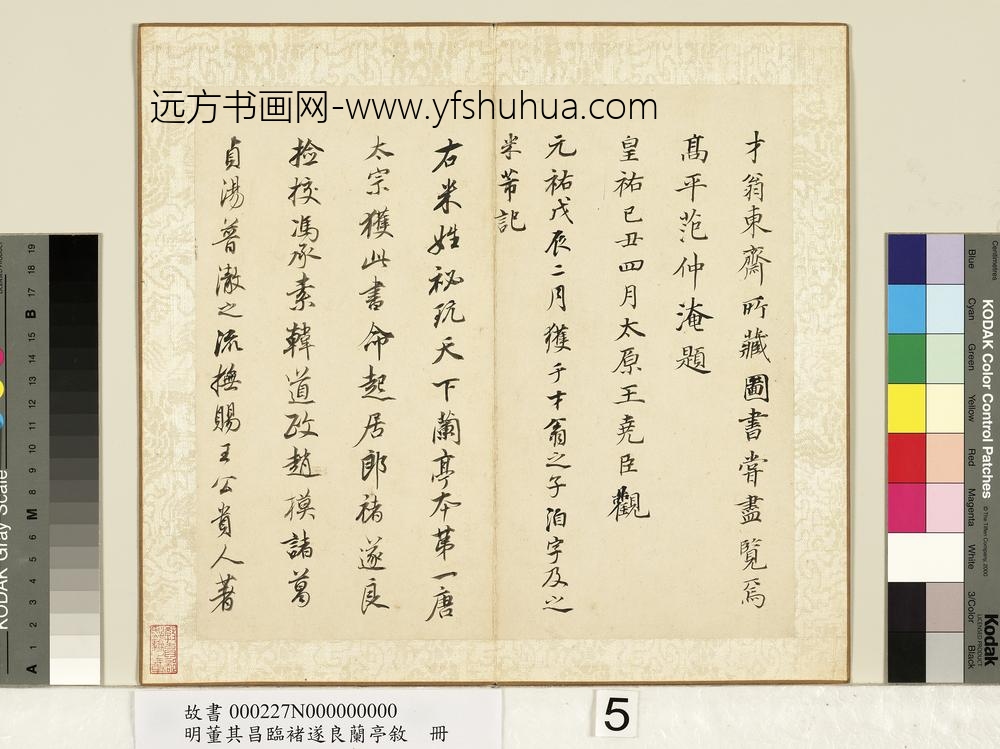 远方书画网-www.yfshuhua.com
才翁東齋所藏圖書嘗盡覽焉
高平范仲淹題
皇祐己丑四月太原王堯臣觀
元祐戊辰二月獲于才翁之子洎字及之
米芾記
右米姓秘玩天下蘭亭本第一唐
太宗獲此書命起居郎褚遂良
撿校馮承素韓道政趙模諸葛
貞湯普澈之流撫賜王公貴人著
故書 000227N000000000
明董其昌臨褚遂良蘭亭敘 冊
5
KODAK Color Control Patches
© The Tiffen Company, 2000
Kodak
LICENSED PRODUCT
Centimetres
Blue
Cyan
Green
Yellow
Red
Magenta
White
3/Color
Black
KODAK Gray Scale
A 1 2 3 4 5 6 M 8 9 10 11 12 13 14 15 B 17 18 19